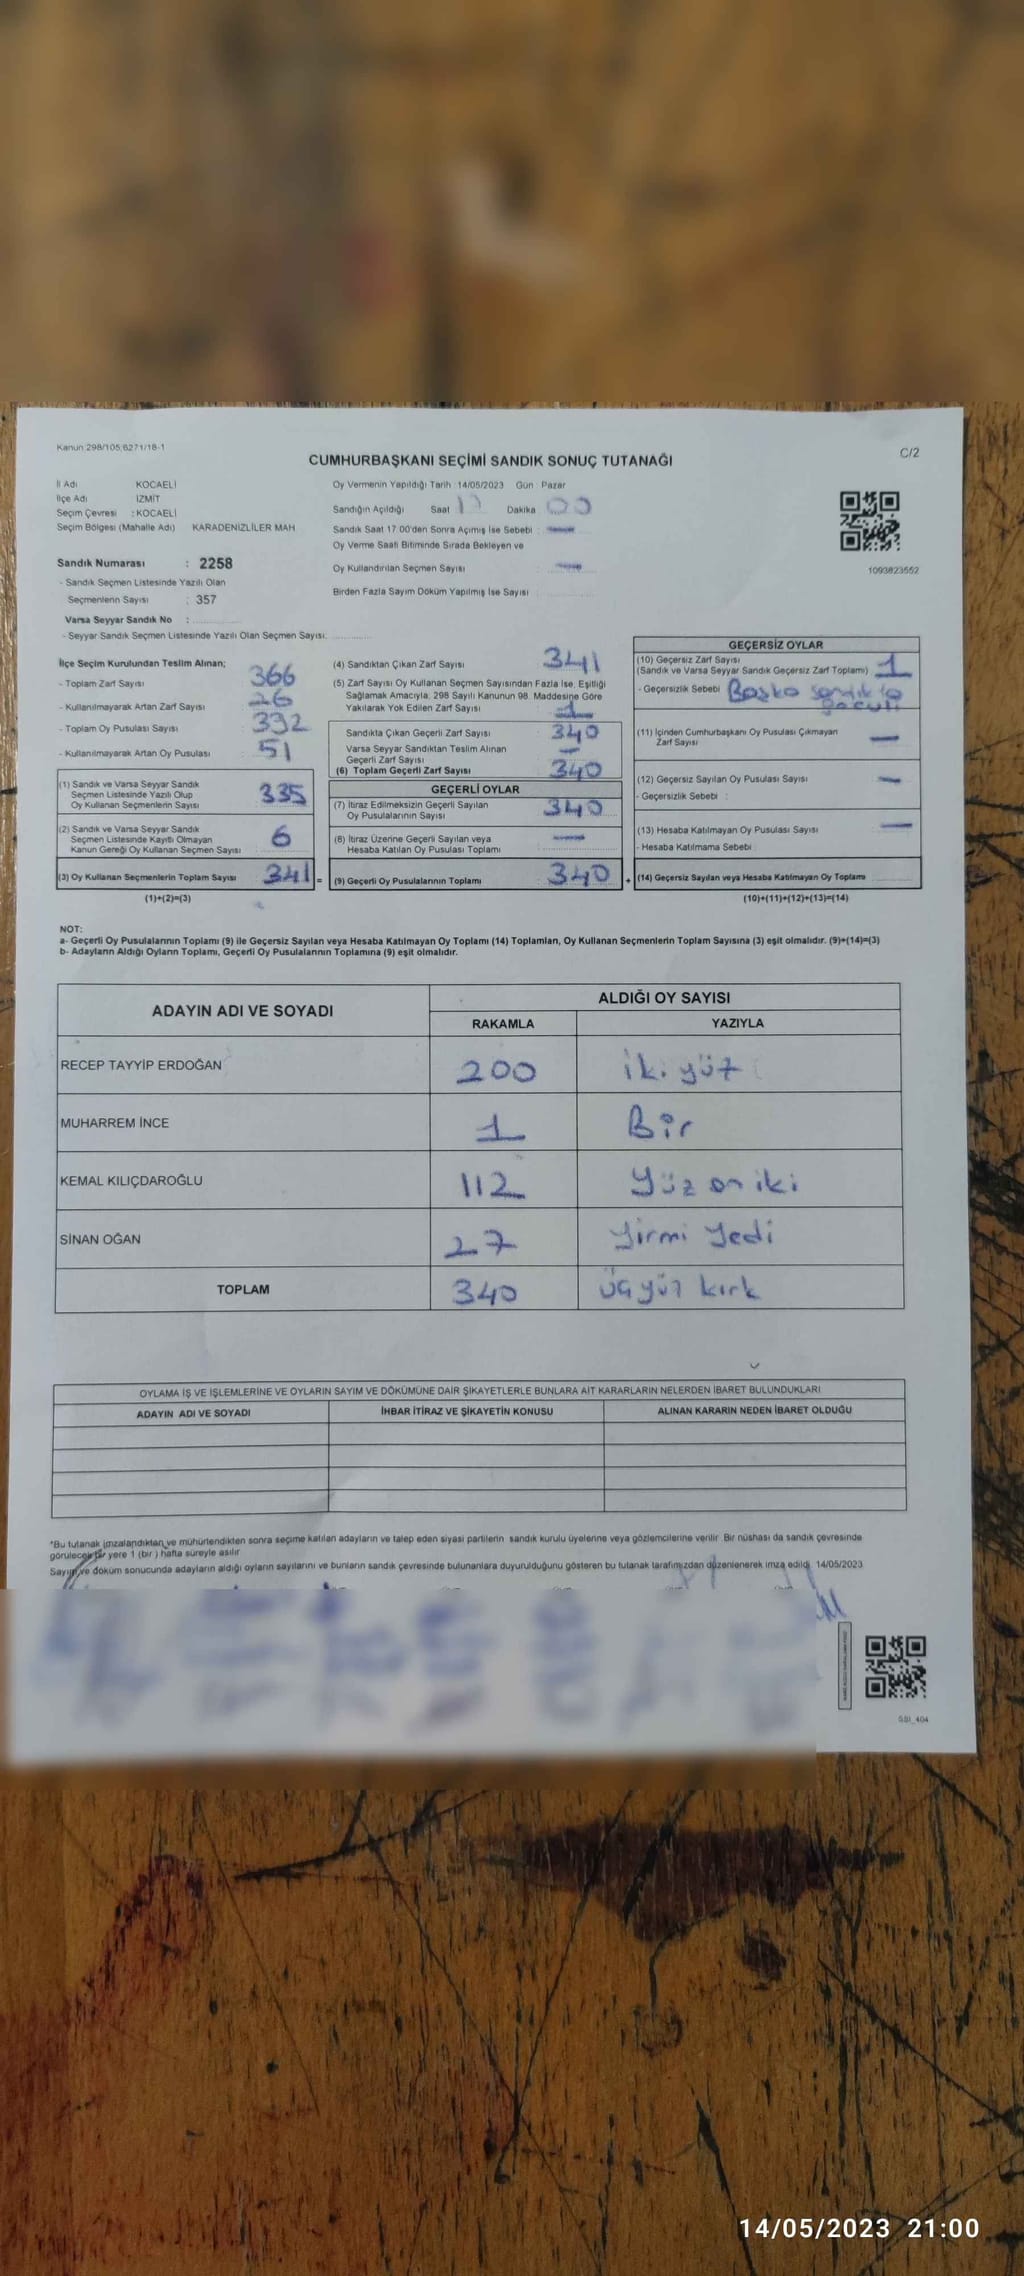 Kanun:298/105,6271/18-1
C/2
CUMHURBAŞKANI SEÇİMİ SANDIK SONUÇ TUTANAĞI
İl Adı KOCAELİ
İlçe Adı İZMİT
Seçim Çevresi : KOCAELİ
Seçim Bölgesi (Mahalle Adı) KARADENİZLİLER MAH
Sandık Numarası : 2258
- Sandık Seçmen Listesinde Yazılı Olan
Seçmenlerin Sayısı : 357
Varsa Seyyar Sandık No :
- Seyyar Sandık Seçmen Listesinde Yazılı Olan Seçmen Sayısı:
Oy Vermenin Yapıldığı Tarih 14/05/2023 Gün : Pazar
Sandığın Açıldığı Saat 17 Dakika 00
Sandık Saat 17.00'den Sonra Açımış İse Sebebi : —
Oy Verme Saati Bitiminde Sırada Bekleyen ve
Oy Kullandırılan Seçmen Sayısı : —
Birden Fazla Sayım Döküm Yapılmış İse Sayısı :
1093823552
İlçe Seçim Kurulundan Teslim Alınan;
- Toplam Zarf Sayısı 366
- Kullanılmayarak Artan Zarf Sayısı 26
- Toplam Oy Pusulası Sayısı 332
- Kullanılmayarak Artan Oy Pusulası 51
(1) Sandık ve Varsa Seyyar Sandık
Seçmen Listesinde Yazılı Olup
Oy Kullanan Seçmenlerin Sayısı 335
(2) Sandık ve Varsa Seyyar Sandık
Seçmen Listesinde Kayıtlı Olmayan
Kanun Gereği Oy Kullanan Seçmen Sayısı 6
(3) Oy Kullanan Seçmenlerin Toplam Sayısı 341 =
(1)+(2)=(3)
(4) Sandıktan Çıkan Zarf Sayısı 341
(5) Zarf Sayısı Oy Kullanan Seçmen Sayısından Fazla İse, Eşitliği
Sağlamak Amacıyla, 298 Sayılı Kanunun 98. Maddesine Göre
Yakılarak Yok Edilen Zarf Sayısı 1
Sandıkta Çıkan Geçerli Zarf Sayısı 340
Varsa Seyyar Sandıktan Teslim Alınan
Geçerli Zarf Sayısı —
(6) Toplam Geçerli Zarf Sayısı 340
GEÇERLİ OYLAR
(7) İtiraz Edilmeksizin Geçerli Sayılan
Oy Pusulalarının Sayısı 340
(8) İtiraz Üzerine Geçerli Sayılan veya
Hesaba Katılan Oy Pusulası Toplamı —
(9) Geçerli Oy Pusulalarının Toplamı 340 +
GEÇERSİZ OYLAR
(10) Geçersiz Zarf Sayısı
(Sandık ve Varsa Seyyar Sandık Geçersiz Zarf Toplamı) 1
- Geçersizlik Sebebi Başka sandıkta
(11) İçinden Cumhurbaşkanı Oy Pusulası Çıkmayan
Zarf Sayısı —
(12) Geçersiz Sayılan Oy Pusulası Sayısı —
- Geçersizlik Sebebi :
(13) Hesaba Katılmayan Oy Pusulası Sayısı —
- Hesaba Katılmama Sebebi :
(14) Geçersiz Sayılan veya Hesaba Katılmayan Oy Toplamı
(10)+(11)+(12)+(13)=(14)
NOT:
a- Geçerli Oy Pusulalarının Toplamı (9) ile Geçersiz Sayılan veya Hesaba Katılmayan Oy Toplamı (14) Toplamları, Oy Kullanan Seçmenlerin Toplam Sayısına (3) eşit olmalıdır. (9)+(14)=(3)
b- Adayların Aldığı Oyların Toplamı, Geçerli Oy Pusulalarının Toplamına (9) eşit olmalıdır.
ADAYIN ADI VE SOYADI
ALDIĞI OY SAYISI
RAKAMLA YAZIYLA
RECEP TAYYİP ERDOĞAN 200 iki yüz
MUHARREM İNCE 1 Bir
KEMAL KILIÇDAROĞLU 112 Yüz on iki
SİNAN OĞAN 27 Yirmi Yedi
TOPLAM 340 üçyüz kırk
OYLAMA İŞ VE İŞLEMLERİNE VE OYLARIN SAYIM VE DÖKÜMÜNE DAİR ŞİKAYETLERLE BUNLARA AİT KARARLARIN NELERDEN İBARET BULUNDUKLARI
ADAYIN ADI VE SOYADI İHBAR İTİRAZ VE ŞİKAYETİN KONUSU ALINAN KARARIN NEDEN İBARET OLDUĞU
*Bu tutanak imzalandıktan ve mühürlendikten sonra seçime katılan adayların ve talep eden siyasi partilerin sandık kurulu üyelerine veya gözlemcilerine verilir. Bir nüshası da sandık çevresinde
görülecek bir yere 1 (bir) hafta süreyle asılır.
Sayım ve döküm sonucunda adayların aldığı oyların sayılarını ve bunların sandık çevresinde bulunanlara duyurulduğunu gösteren bu tutanak tarafımızdan düzenlenerek imza edildi. 14/05/2023
SSI_404
14/05/2023 21:00